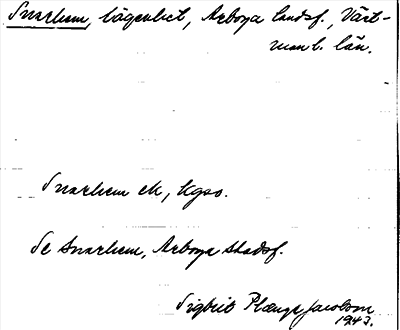 Snarhem, lägenhet, Arboya landsf., Väst-
manl. län.
Snarhem ek, kgso.
Se Snarhem, Arboya stadsf.
Sigbrit Plænge Jacobson
1943.